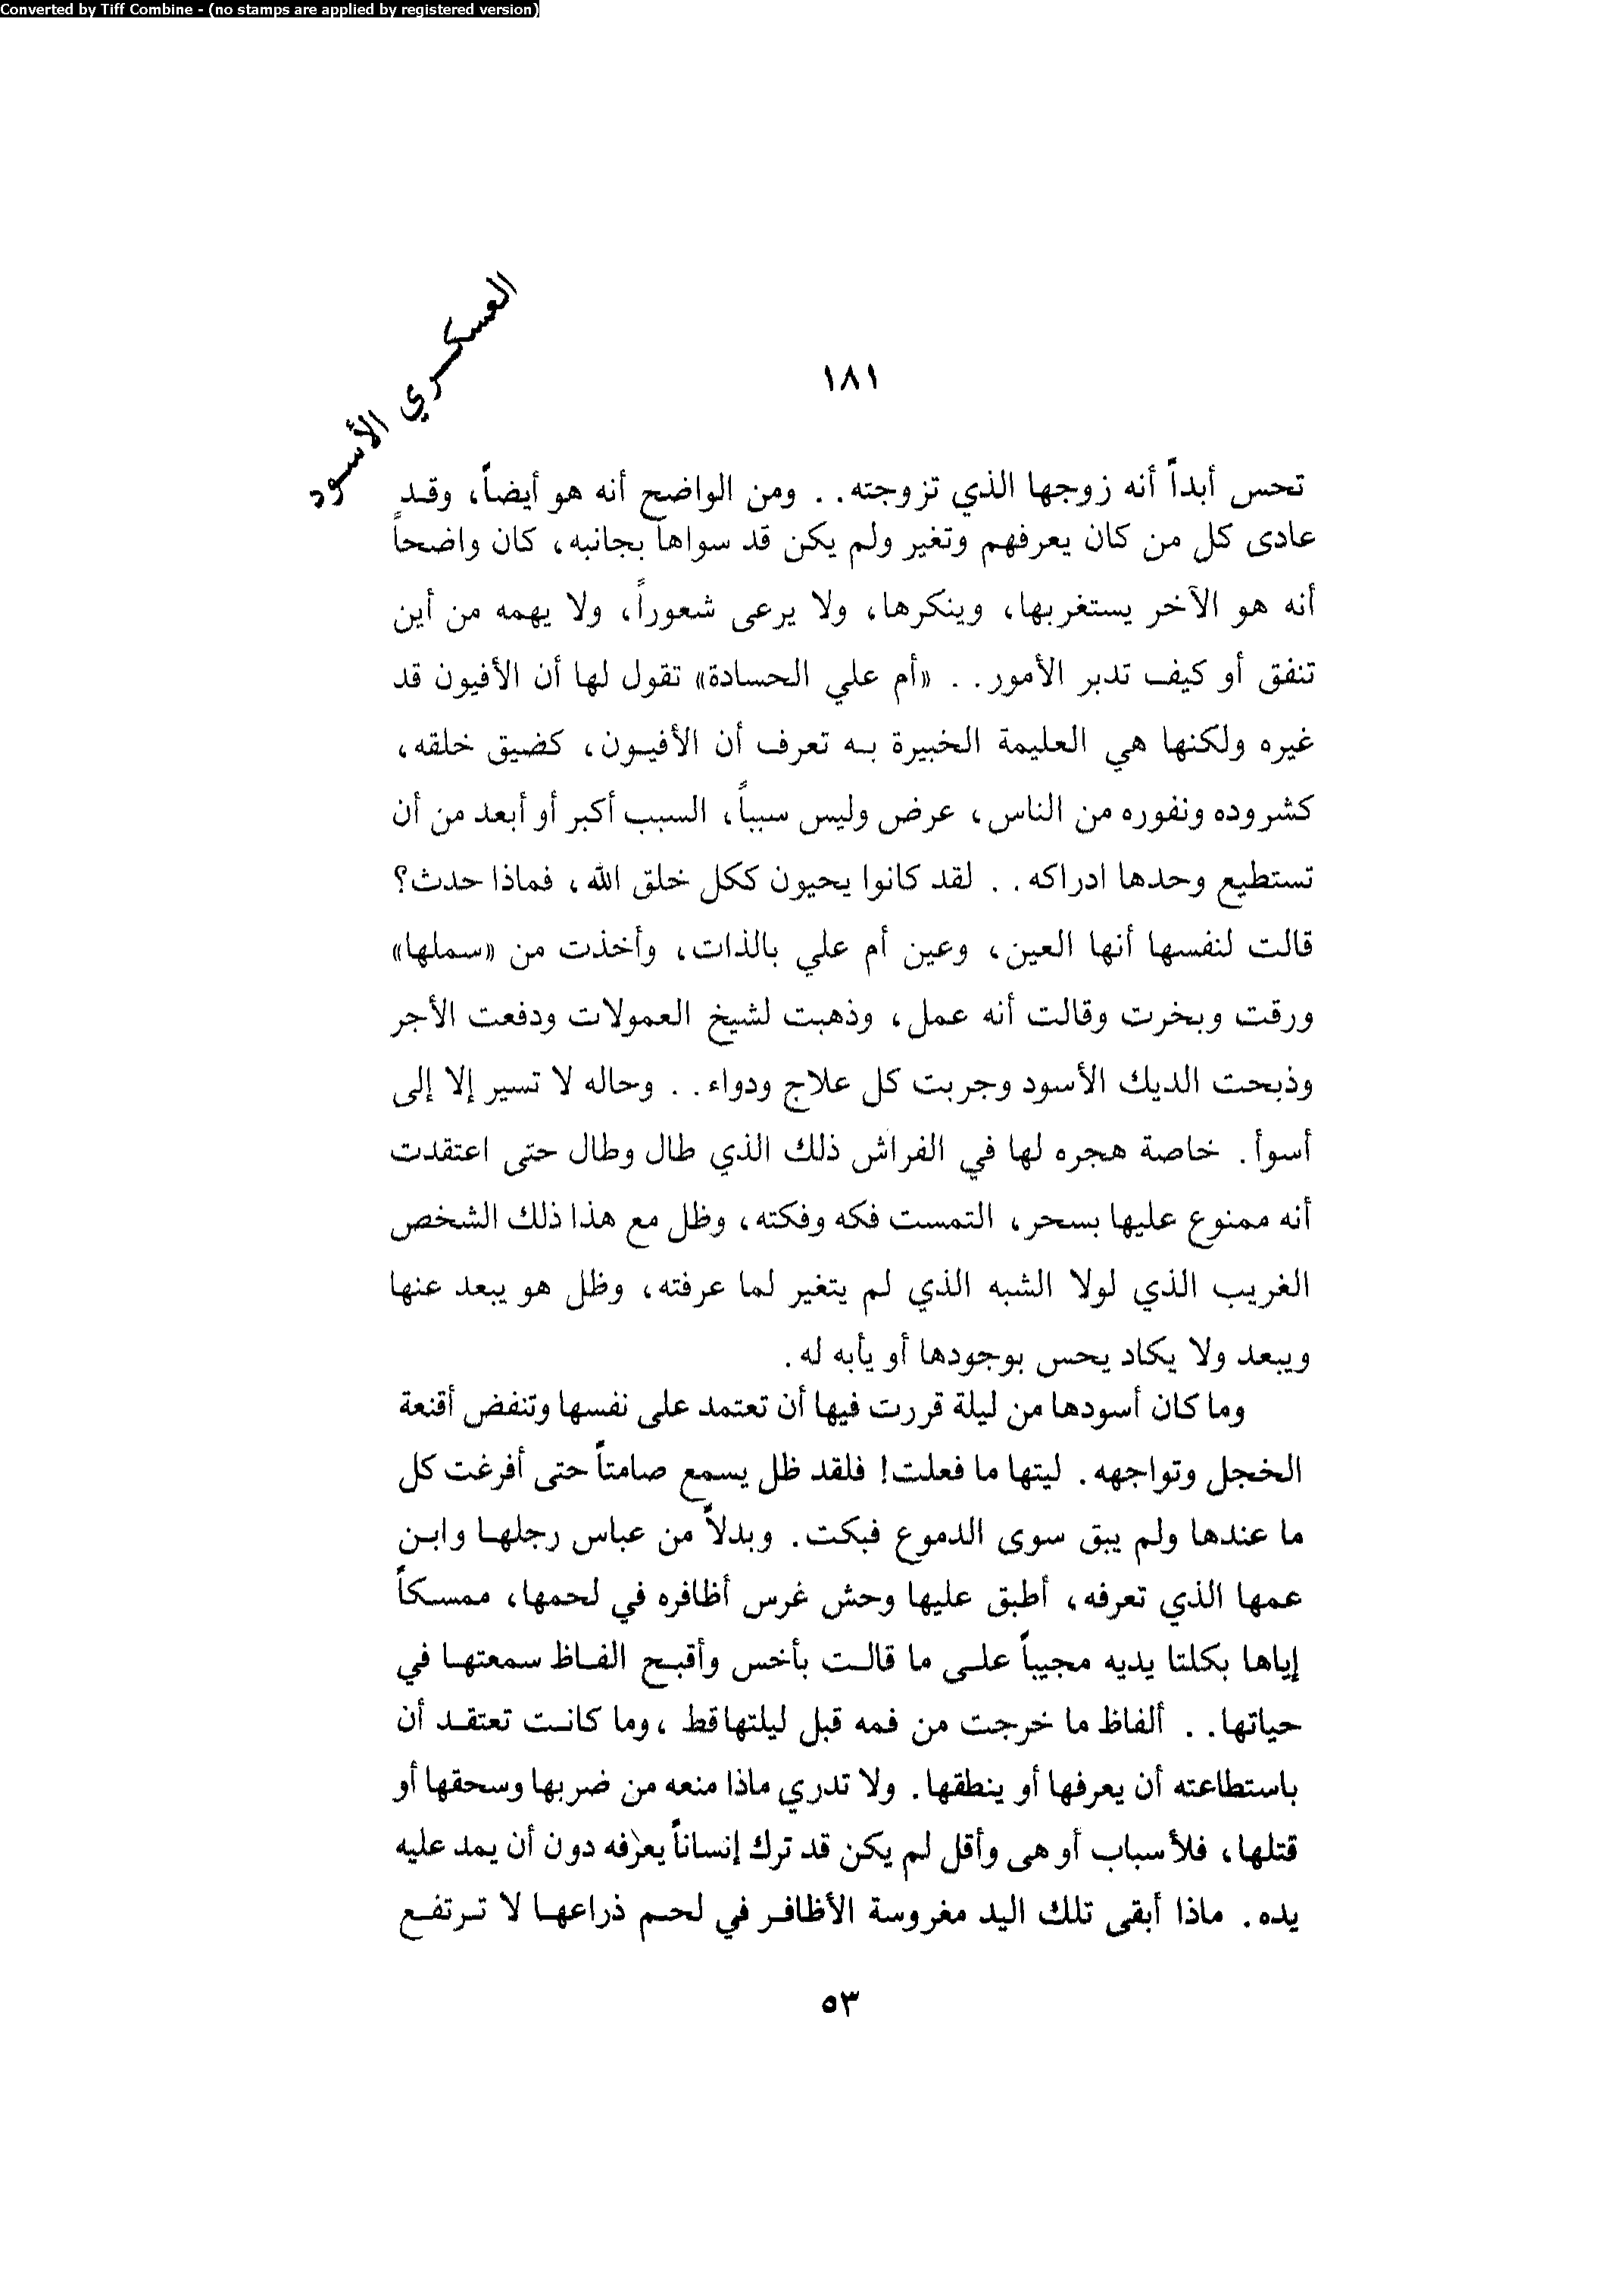 Converted by Tiff Combine - (no stamps are applied by registered version)
العسكري الأسود
١٨١
تحس أبداً أنه زوجها الذي تزوجته.. ومن الواضح أنه هو أيضاً، وقد
عادى كل من كان يعرفهم وتغير ولم يكن قد سواها بجانبه، كان واضحاً
أنه هو الآخر يستغربها، وينكرها، ولا يرعى شعوراً، ولا يهمه من أين
تنفق أو كيف تدبر الأمور.. «أم علي الحسادة» تقول لها أن الأفيون قد
غيره ولكنها هي العليمة الخبيرة به تعرف أن الأفيون، كضيق خلقه،
كشروده ونفوره من الناس، عرض وليس سبباً، السبب أكبر أو أبعد من أن
تستطيع وحدها ادراكه.. لقد كانوا يحيون ككل خلق الله، فماذا حدث؟
قالت لنفسها أنها العين، وعين أم علي بالذات، وأخذت من «سملها»
ورقت وبخرت وقالت أنه عمل، وذهبت لشيخ العمولات ودفعت الأجر
وذبحت الديك الأسود وجربت كل علاج ودواء.. وحاله لا تسير إلا إلى
أسوأ. خاصة هجره لها في الفراش ذلك الذي طال وطال حتى اعتقدت
أنه ممنوع عليها بسحر، التمست فكه وفكته، وظل مع هذا ذلك الشخص
الغريب الذي لولا الشبه الذي لم يتغير لما عرفته، وظل هو يبعد عنها
ويبعد ولا يكاد يحس بوجودها أو يأبه له.
وما كان أسودها من ليلة قررت فيها أن تعتمد على نفسها وتنفض أقنعة
الخجل وتواجهه. ليتها ما فعلت! فلقد ظل يسمع صامتاً حتى أفرغت كل
ما عندها ولم يبق سوى الدموع فبكت. وبدلاً من عباس رجلها وابن
عمها الذي تعرفه، أطبق عليها وحش غرس أظافره في لحمها، ممسكاً
إياها بكلتا يديه مجيباً على ما قالت بأخس وأقبح الفاظ سمعتها في
حياتها.. ألفاظ ما خرجت من فمه قبل ليلتها قط، وما كانت تعتقد أن
باستطاعته أن يعرفها أو ينطقها. ولا تدري ماذا منعه من ضربها وسحقها أو
قتلها، فلأسباب أو هى وأقل لم يكن قد ترك إنساناً يعرفه دون أن يمد عليه
يده. ماذا أبقى تلك اليد مغروسة الأظافر في لحم ذراعها لا ترتفع
٥٣